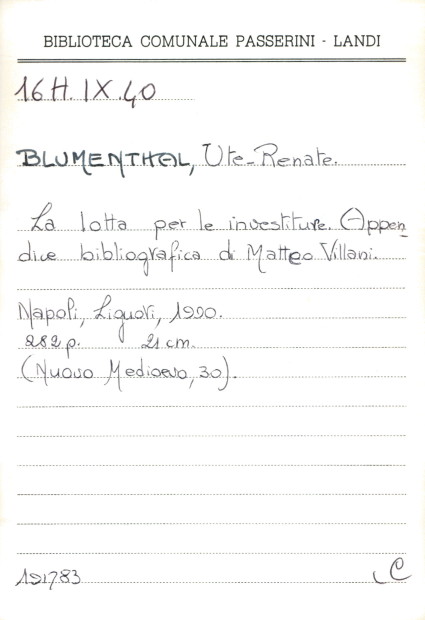 BIBLIOTECA COMUNALE PASSERINI - LANDI
16H.IX.40
BLUMENTHAL, Ute-Renate.
La lotta per le investiture. Appen-
dice bibliografica di Matteo Villani.
Napoli, Liguori, 1990.
282 p. 21 cm.
(Nuovo Medioevo, 30).
191783 C